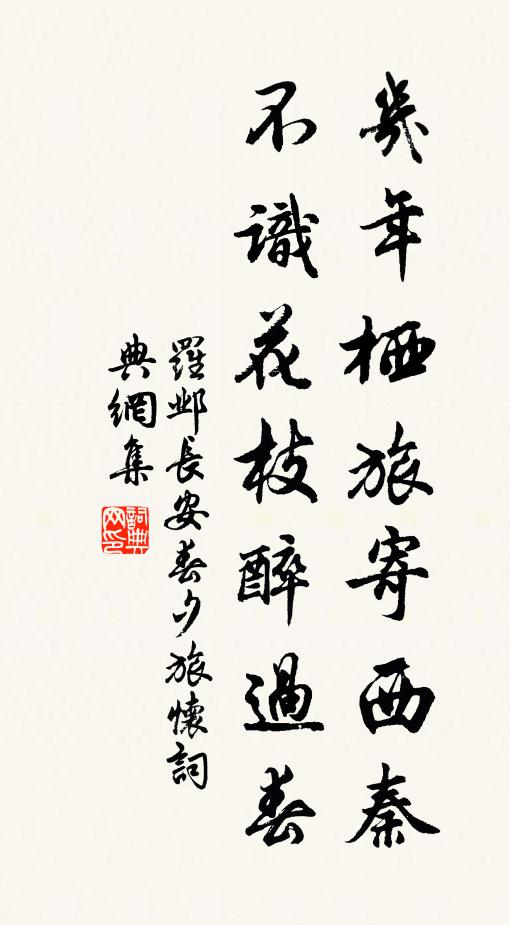 幾年栖旅寄西秦
不識花枝醉過春
羅鄴長安春夕旅懷詞
典網集
詞典
网印